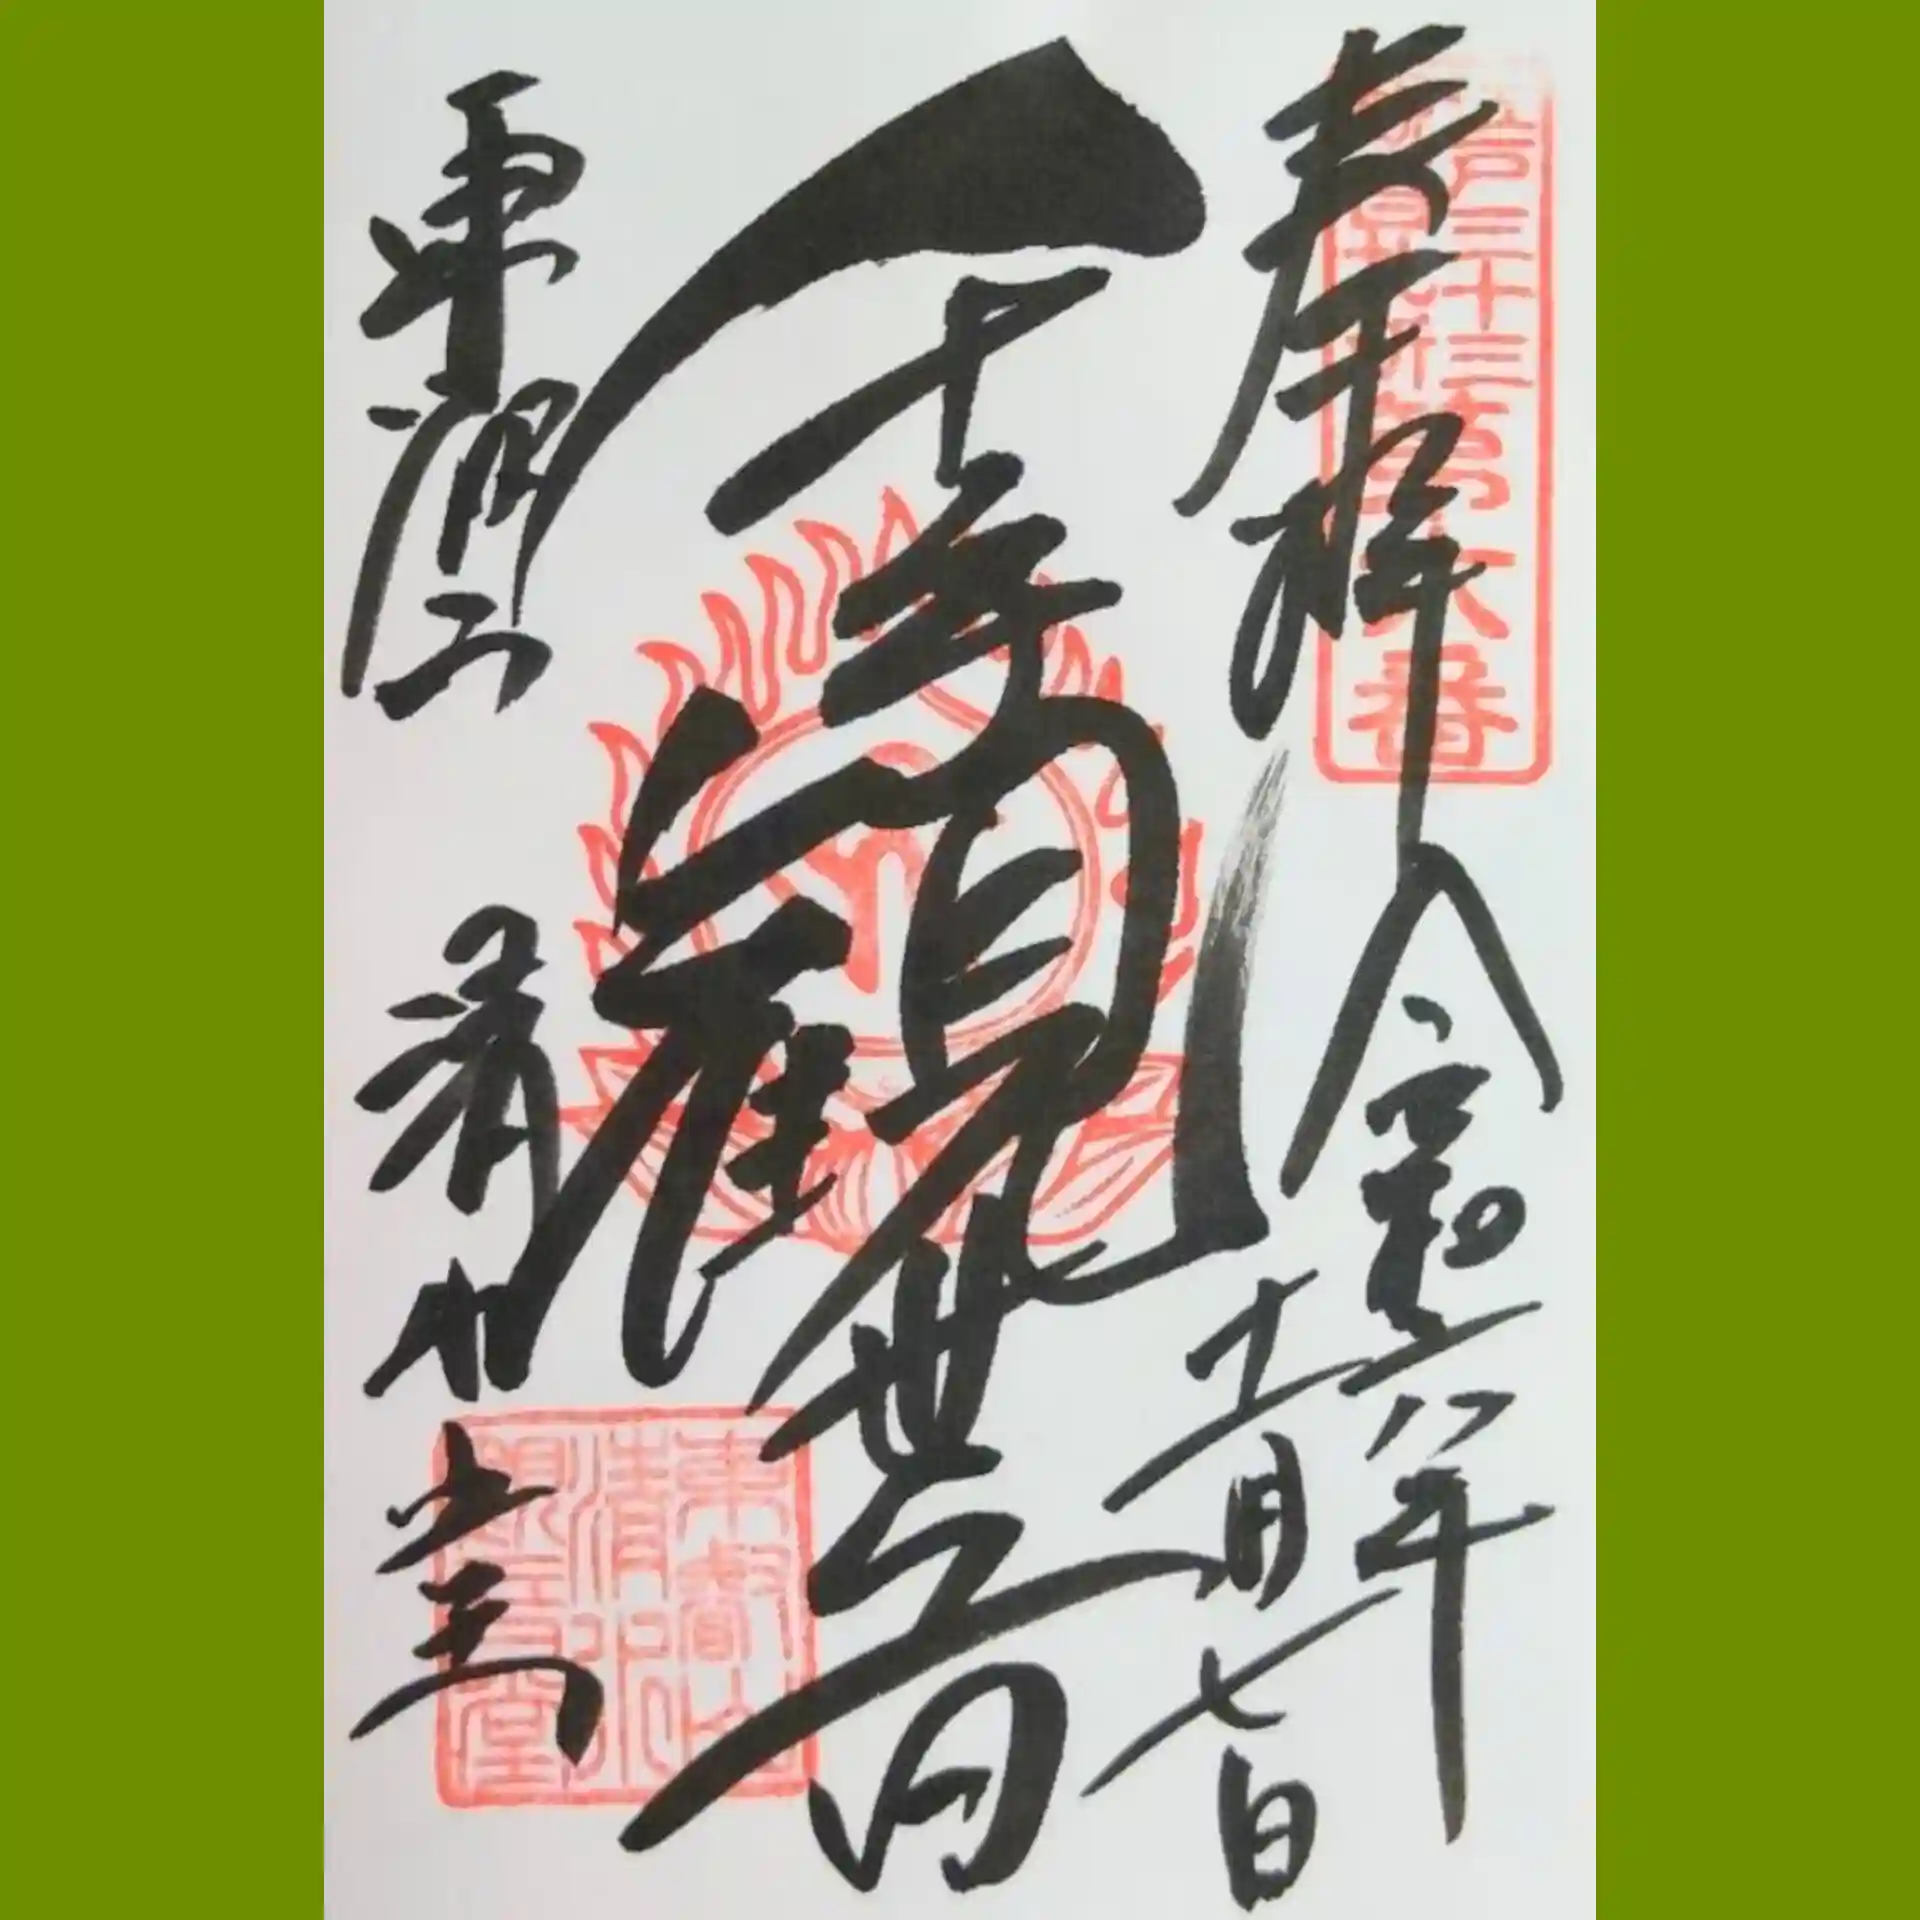 奉拝
年
月七日
千手観世音
東叡山
清水堂
江戸三十三
昭和新撰
第六番
東叡山
清水
観音堂